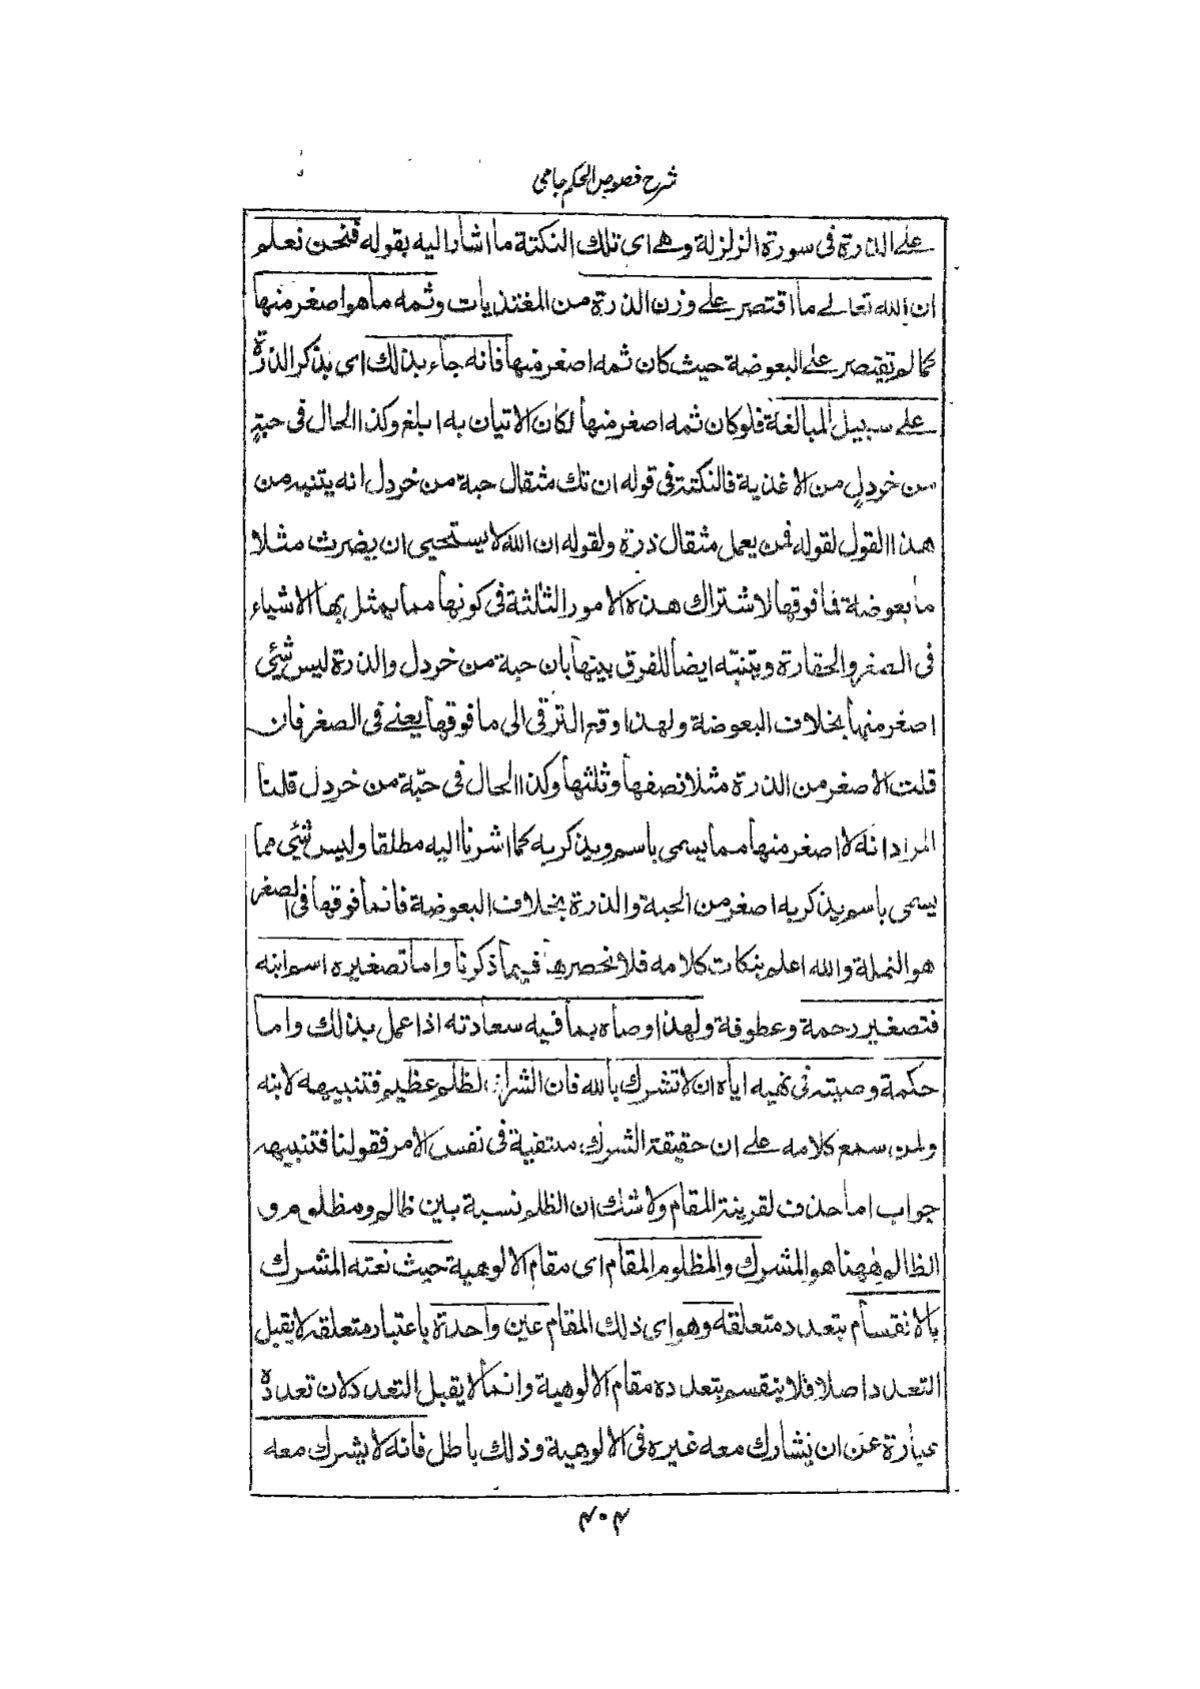 شرح فصوص الحكم جامى
على الذرة فى سورة الزلزلة وهى اى تلك النكتة ما اشار اليه بقوله فنحن نعلم
ان الله تعالى ما اقتصر على وزن الذرة من المغتذيات وثمه ما هو اصغر منها
كما لم يقتصر على البعوضة حيث كان ثمه اصغر منها فانه جاء بذلك اى بذكر الذرة
على سبيل المبالغة فلو كان ثمه اصغر منها لكان الاتيان به ابلغ وكذا الحال فى حبةٍ
من خردلٍ من الاغذية فالنكتة فى قوله ان تك مثقال حبة من خردل انه يتنبه من
هذا القول لقوله فمن يعمل مثقال ذرة ولقوله ان الله لا يستحيى ان يضرب مثلا
ما بعوضة فما فوقها لاشتراك هذه الامور الثلثة فى كونها مما يمثل بها الاشياء
فى الصغر والحقارة ويتنبّه ايضا للفرق بينها بان حبة من خردل والذرة ليس شئ
اصغر منها بخلاف البعوضة ولهذا وقع الترقى الى ما فوقها يعنى فى الصغر فان
قلت الاصغر من الذرة مثلا نصفها وثلثها وكذا الحال فى حبّة من خردل قلنا
المراد انه لا اصغر منها مما يسمى باسم ويذكر به كما اشرنا اليه مطلقا وليس شئ مما
يسمى باسم يذكر به اصغر من الحبة والذرة بخلاف البعوضة فانما فوقها فى الصغر
هو النملة والله اعلم بنكات كلامه فلا نحصرها فيما ذكرنا واما تصغيره اسم ابنه
فتصغير رحمة وعطوفة ولهذا وصاه بما فيه سعادته اذا عمل بذلك واما
حكمة وصيته فى نهيه اياه ان لا تشرك بالله فان الشرك لظلم عظيم فتنبيهه لابنه
ولمن سمع كلامه على ان حقيقة الشرك منتفية فى نفس الامر فقولنا فتنبيهه
جواب اما حذف لقرينة المقام ولا شك ان الظلم نسبة بين ظالم ومظلوم و
الظالم ههنا هو المشرك والمظلوم المقام اى مقام الالوهية حيث نعته المشرك
بالانقسام بتعدد متعلقه وهو اى ذلك المقام عين واحدة باعتبار متعلقه لا يقبل
التعدد اصلا فلا ينقسم بتعدده مقام الالوهية وانما لا يقبل التعدد لان تعدده
عبارة عن ان نشارك معه غيره فى الالوهية وذلك باطل فانه لا يشرك معه
٤٠٤